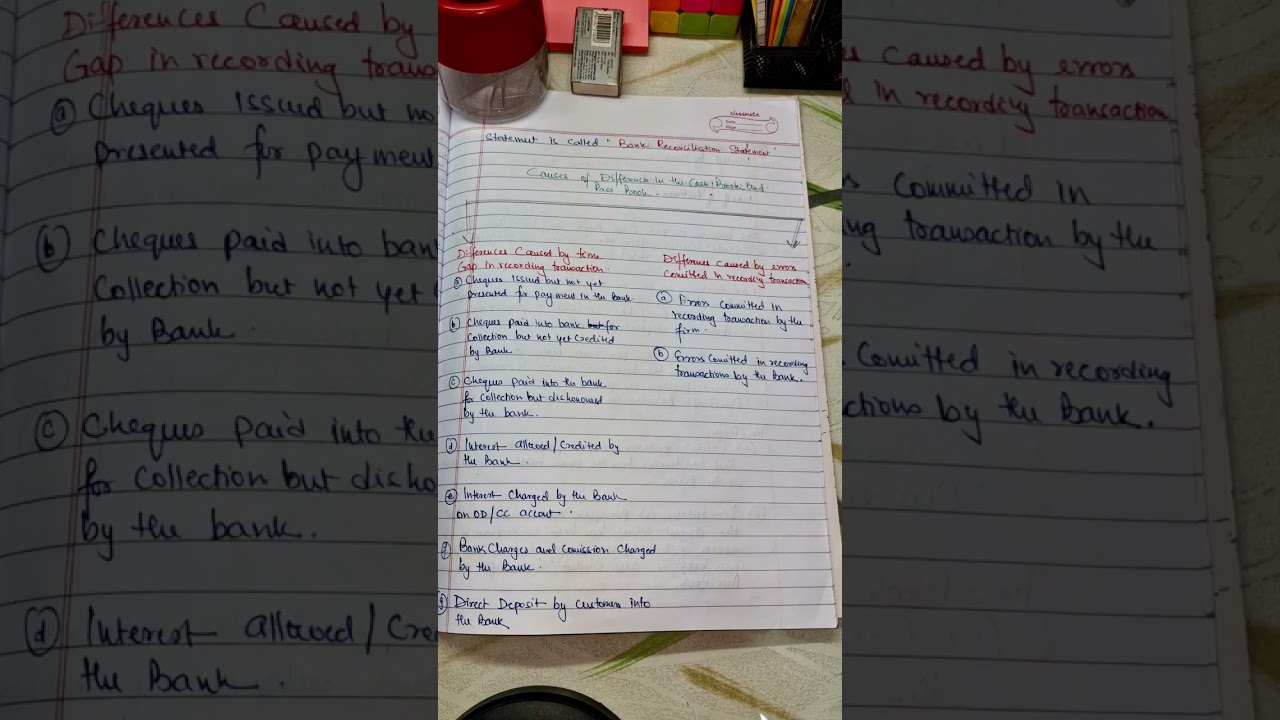 classmate
Date
Page
Statement is called "Bank Reconciliation Statement"
Causes of Differences in the Cash Book And
Pass Book -
Differences Caused by time
Gap in recording transaction.
(a) Cheques Issued but not yet
presented for payment in the Bank
(b) Cheques paid into bank but for
Collection but not yet Credited
by Bank.
(c) Cheques paid into the bank
for collection but dishonoured
by the bank.
(d) Interest allowed/Credited by
the Bank.
(e) Interest Charged by the Bank
on OD/CC account.
Bank Charges and Comission Charged
by the Bank.
(g) Direct Deposit by Customers into
the Bank
Differences Caused by errors
Comitted in recording transaction
(a) Errors Committed In
recording transaction by the
firm.
(b) Errors Comitted in recording
transactions by the Bank.
Differences Caused by
Gap in recording
(a) Cheques Issued but
presented for payment
(b) Cheques paid into
Collection but not yet
by Bank.
(c) Cheques paid into the
for Collection but
by the bank.
(d) Interest allowed/
the Bank.
Caused by errors
in recording transaction
Committed In
transaction by the
Comitted in recording
by the Bank.